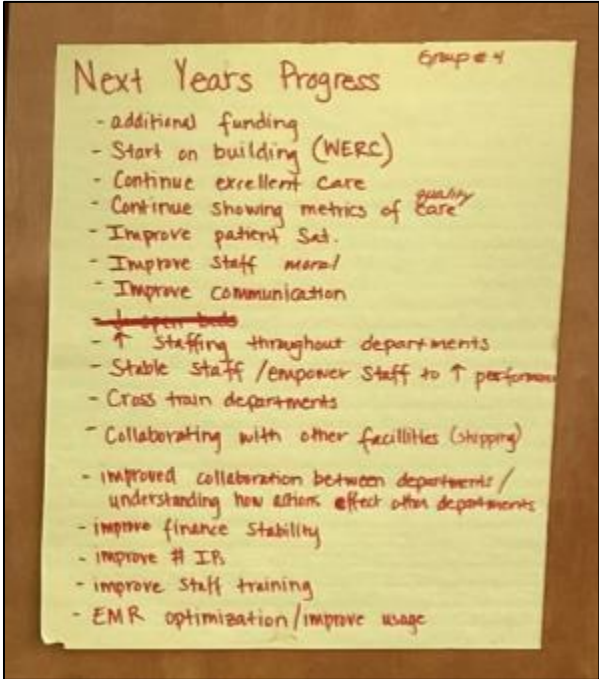 Group # 4
Next Years Progress
- additional funding
- Start on building (WERC)
- Continue excellent care
quality
- Continue showing metrics of care
- Improve patient Sat.
- Improve Staff moral
- Improve communication
- ↑ Staffing throughout departments
- Stable Staff / empower Staff to ↑ performance
- Cross train departments
- Collaborating with other facillities (shipping)
- improved collaboration between departments /
understanding how actions effect other departments
- improve finance Stability
- improve # IPs
- improve Staff training
- EMR optimization / improve usage